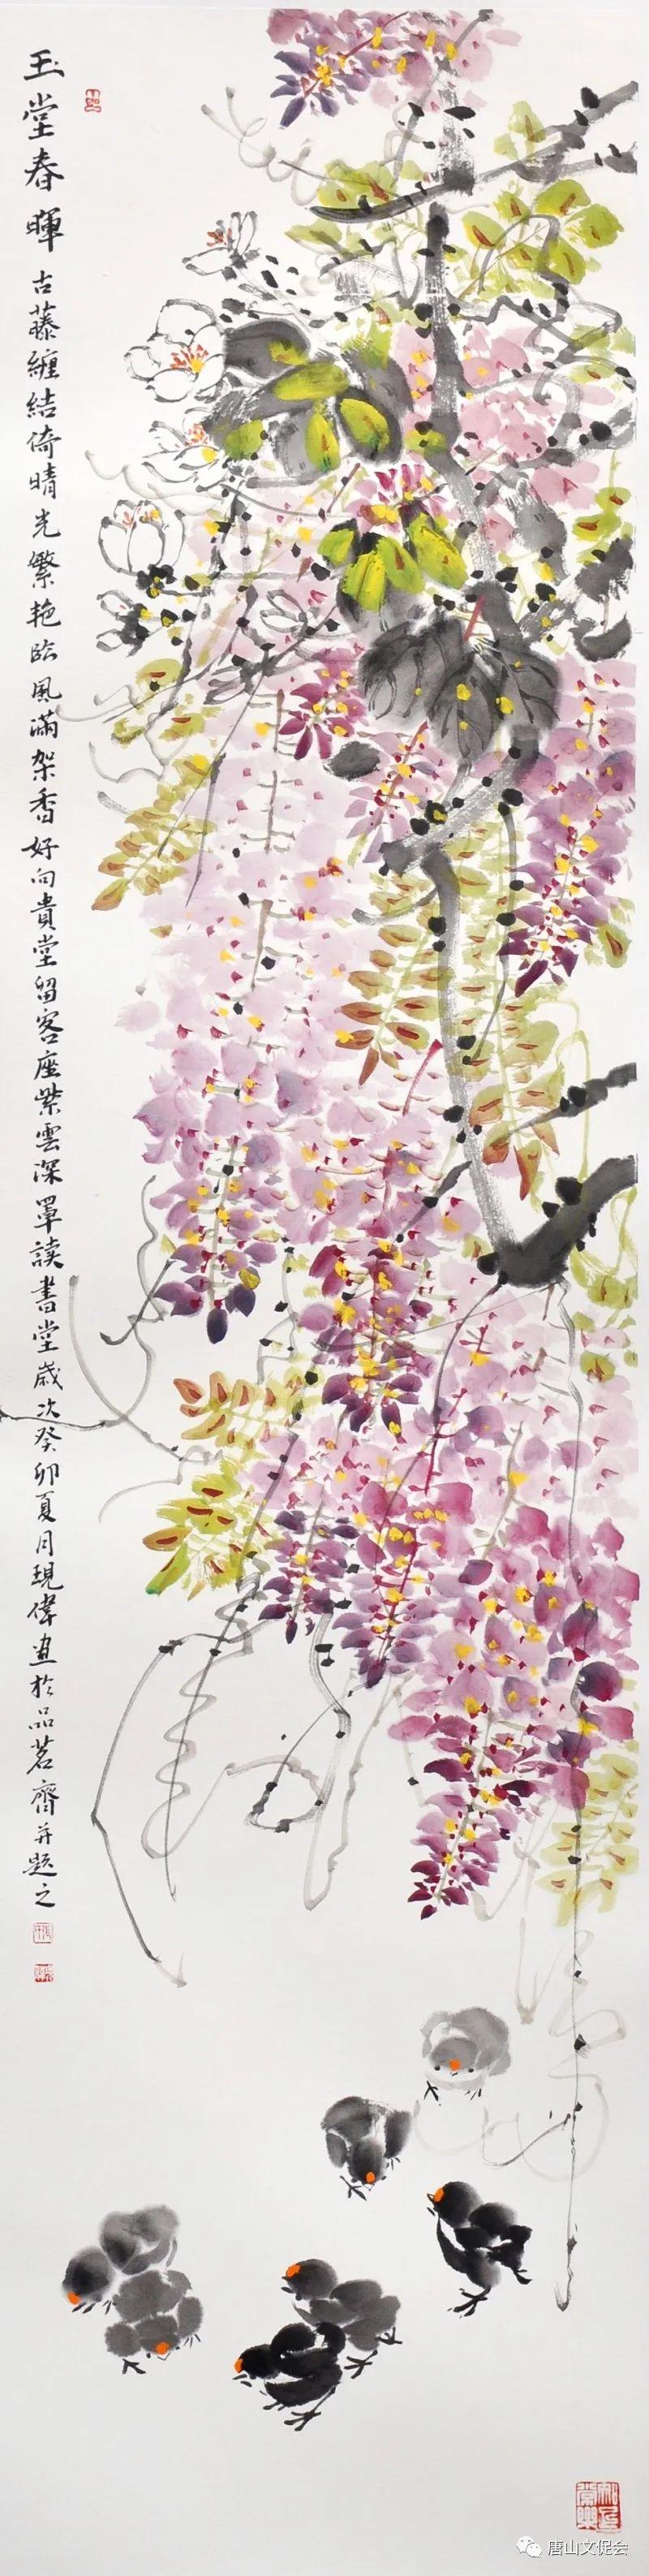 玉堂春暉
古藤纏結倚晴光繁艳临風滿架香好向貴堂留客座紫雲深罩读書堂歲次癸卯夏月現偉畫於品茗齋并題之
唐山文促会